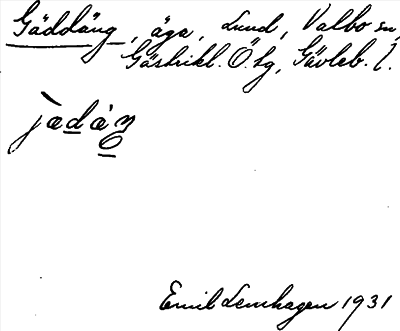 Gäddäng, äga, Lund, Valbo sn,
Gästrikl. Ö. tg, Gävleb. l.
Emil Lenhagen 1931